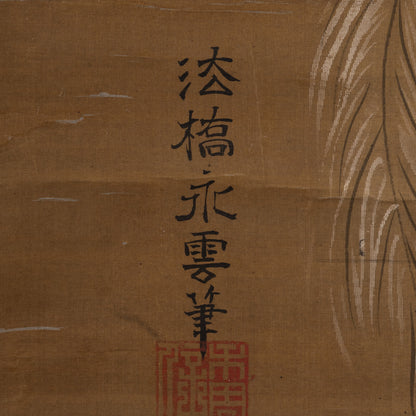 法橋永雲筆